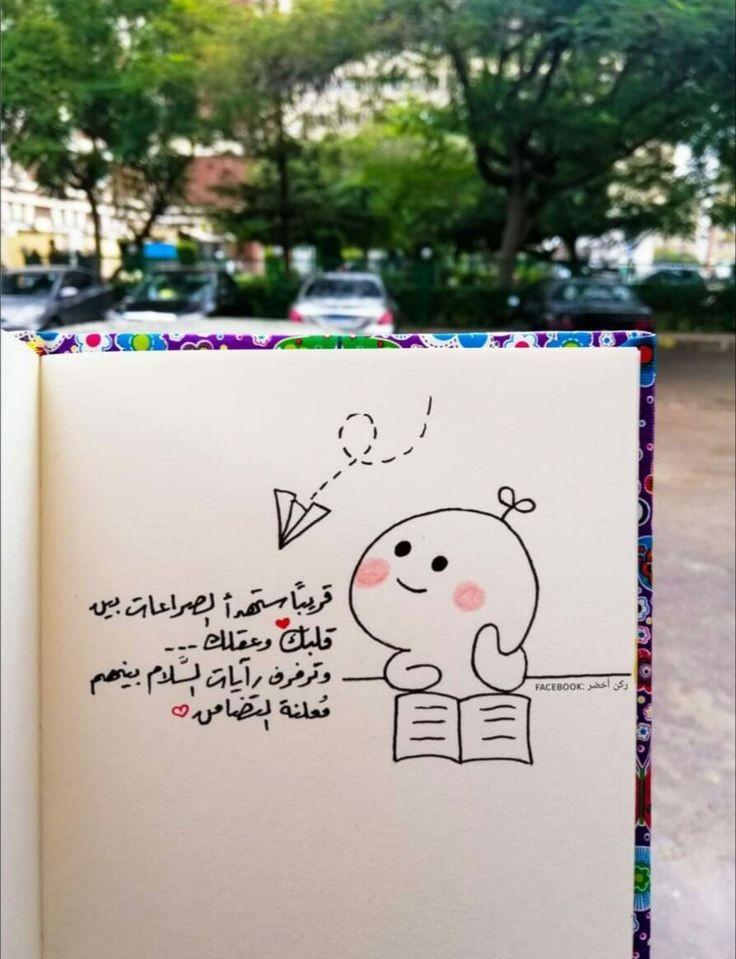 قريبًا ستهدأ الصراعات بين
قلبك وعقلك ...
وترفرف رآيات السَّلام بينهم
مُعلنة التضامن
FACEBOOK: ركن أخضر